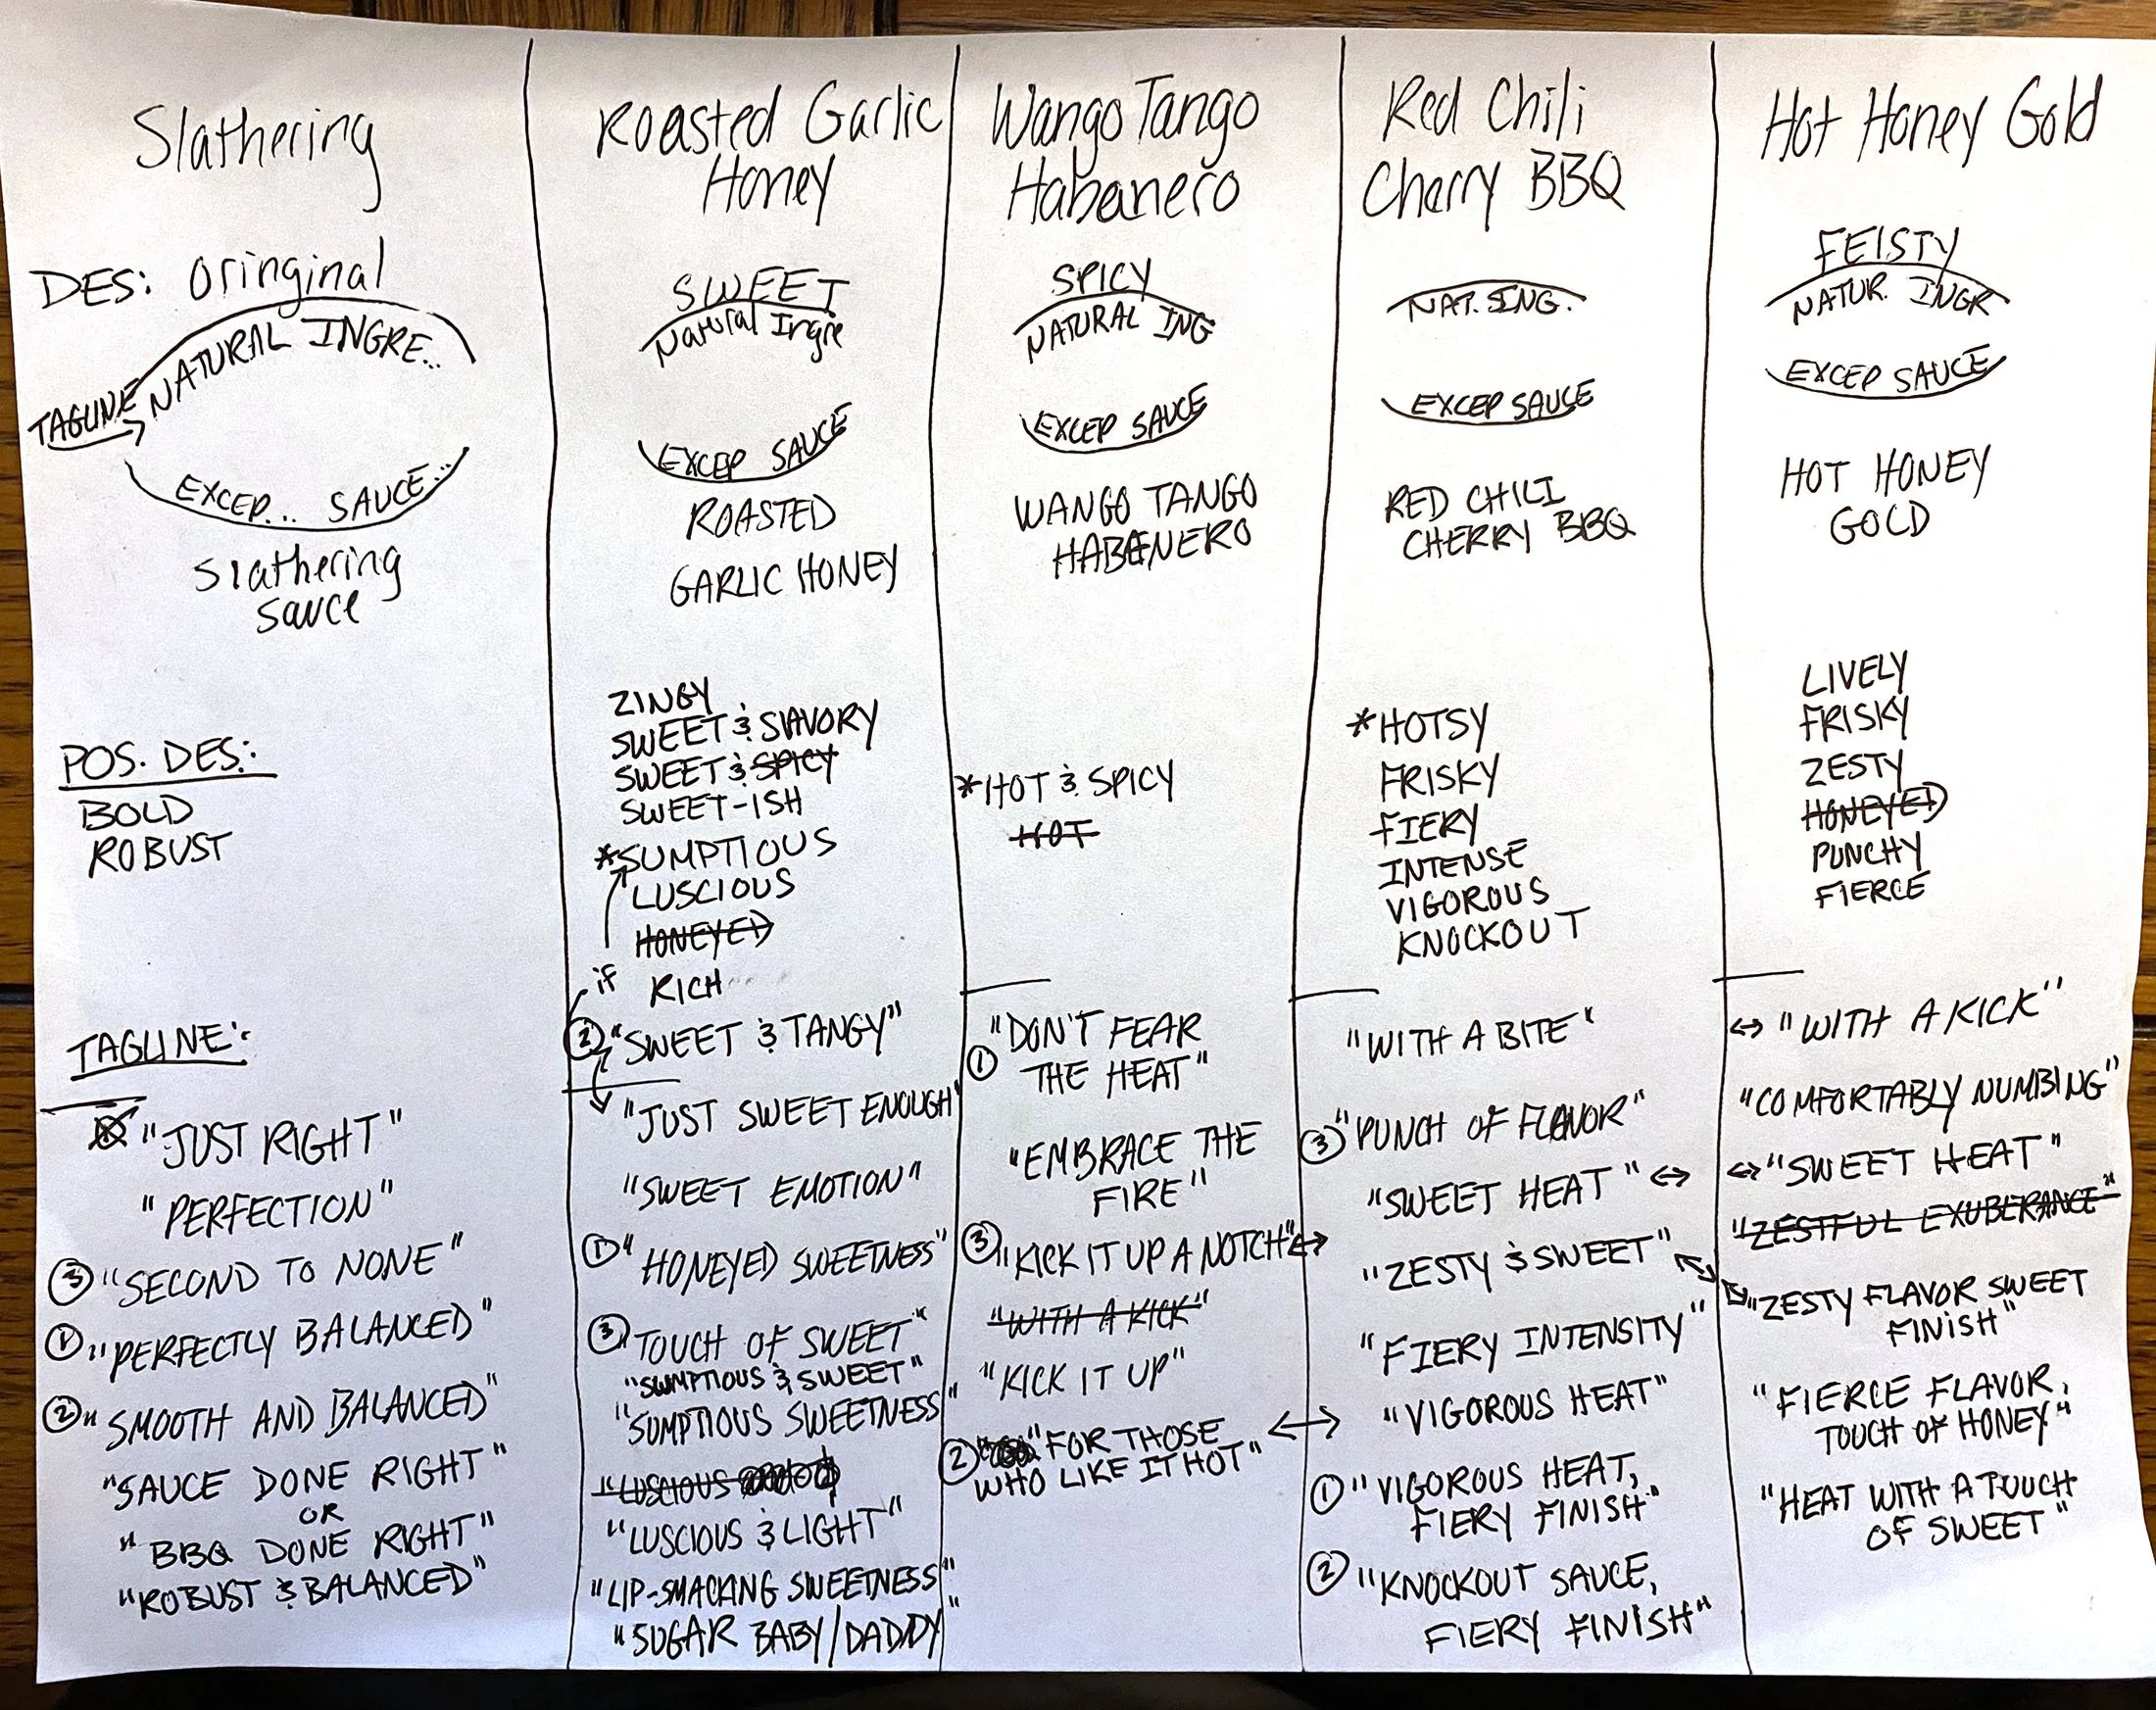 Slathering
DES: Oringinal
NATURAL INGRE..
TAGLINE →
EXCEP... SAUCE..
Slathering
Sauce
POS. DES.:
BOLD
ROBUST
TAGLINE:
"JUST RIGHT"
"PERFECTION"
③ "SECOND TO NONE"
① "PERFECTLY BALANCED"
② "SMOOTH AND BALANCED"
"SAUCE DONE RIGHT"
OR
"BBQ DONE RIGHT"
"ROBUST & BALANCED"
Roasted Garlic
Honey
SWEET
Natural Ingre
EXCEP SAUCE
ROASTED
GARLIC HONEY
ZINGY
SWEET & SAVORY
SWEET & SPICY
SWEET-ISH
*SUMPTIOUS
LUSCIOUS
HONEYED
if
RICH
② "SWEET & TANGY"
"JUST SWEET ENOUGH"
"SWEET EMOTION"
① "HONEYED SWEETNESS"
③ "TOUCH OF SWEET"
"SUMPTIOUS & SWEET"
"SUMPTIOUS SWEETNESS"
"LUSCIOUS
"LUSCIOUS & LIGHT"
"LIP-SMACKING SWEETNESS"
"SUGAR BABY/DADDY"
Wango Tango
Habanero
SPICY
NATURAL ING
EXCEP SAUCE
WANGO TANGO
HABANERO
*HOT & SPICY
HOT
"DON'T FEAR
① THE HEAT"
"EMBRACE THE
FIRE"
③ "KICK IT UP A NOTCH" ↔
"WITH A KICK"
"KICK IT UP"
② "FOR THOSE ↔
WHO LIKE IT HOT"
Red Chili
Cherry BBQ
NAT. SING.
EXCEP SAUCE
RED CHILI
CHERRY BBQ
*HOTSY
FRISKY
FIERY
INTENSE
VIGOROUS
KNOCKOUT
"WITH A BITE"
③ "PUNCH OF FLAVOR"
"SWEET HEAT" ↔
"ZESTY & SWEET"
"FIERY INTENSITY"
"VIGOROUS HEAT"
① "VIGOROUS HEAT,
FIERY FINISH"
② "KNOCKOUT SAUCE,
FIERY FINISH"
Hot Honey Gold
FEISTY
NATUR. INGR
EXCEP SAUCE
HOT HONEY
GOLD
LIVELY
FRISKY
ZESTY
HONEYED
PUNCHY
FIERCE
↔ "WITH A KICK"
"COMFORTABLY NUMBING"
↔ "SWEET HEAT"
"ZESTFUL EXUBERANCE"
"ZESTY FLAVOR SWEET
FINISH"
"FIERCE FLAVOR,
TOUCH OF HONEY"
"HEAT WITH A TOUCH
OF SWEET"